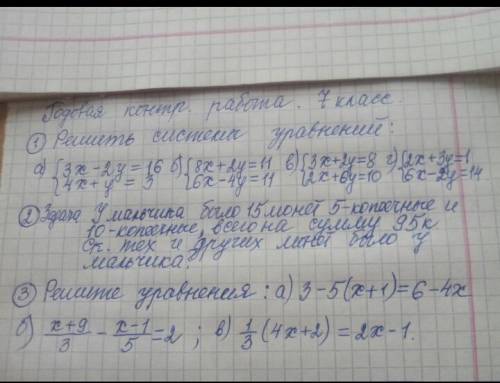 Годовая контр. работа. 7 класс.
① Решить системы уравнений:
а) {3x-2y=16 б) {8x+2y=11 в) {3x+2y=8 г) {2x+3y=1
{4x+y=3 {6x-4y=11 {2x+6y=10 {6x-2y=14
② Задача У мальчика было 15 монет 5-копеечные и
10-копеечные, всего на сумму 95к
Ск. тех и других монет было у
мальчика.
③ Решите уравнения: а) 3-5(x+1)=6-4x
б) (x+9)/3 - (x-1)/5 = 2; в) 1/3 (4x+2) = 2x-1.